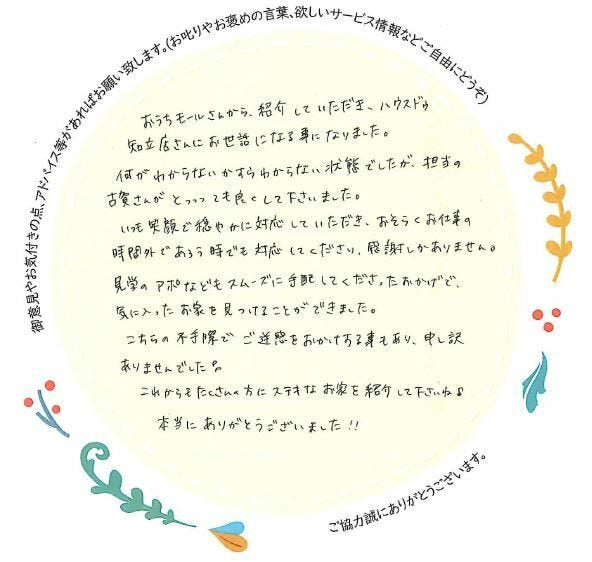 御意見やお気付きの点、アドバイス等があればお願い致します。(お叱りやお褒めの言葉、欲しいサービス情報などご自由にどうぞ)
おうちモールさんから、紹介していただき、ハウスドゥ
知立店さんにお世話になる事になりました。
何がわからないかすらわからない状態でしたが、担当の
古賀さんがとっっっても良くして下さいました。
いつも笑顔で穏やかに対応していただき、おそらくお仕事の
時間外であろう時でも対応してくださり、感謝しかありません。
見学のアポなどもスムーズに手配してくださったおかげで、
気に入ったお家を見つけることができました。
こちらの不手際でご迷惑をおかけする事もあり、申し訳
ありませんでした。
これからもたくさんの方にステキなお家を紹介して下さいね♪
本当にありがとうございました!!
ご協力誠にありがとうございます。